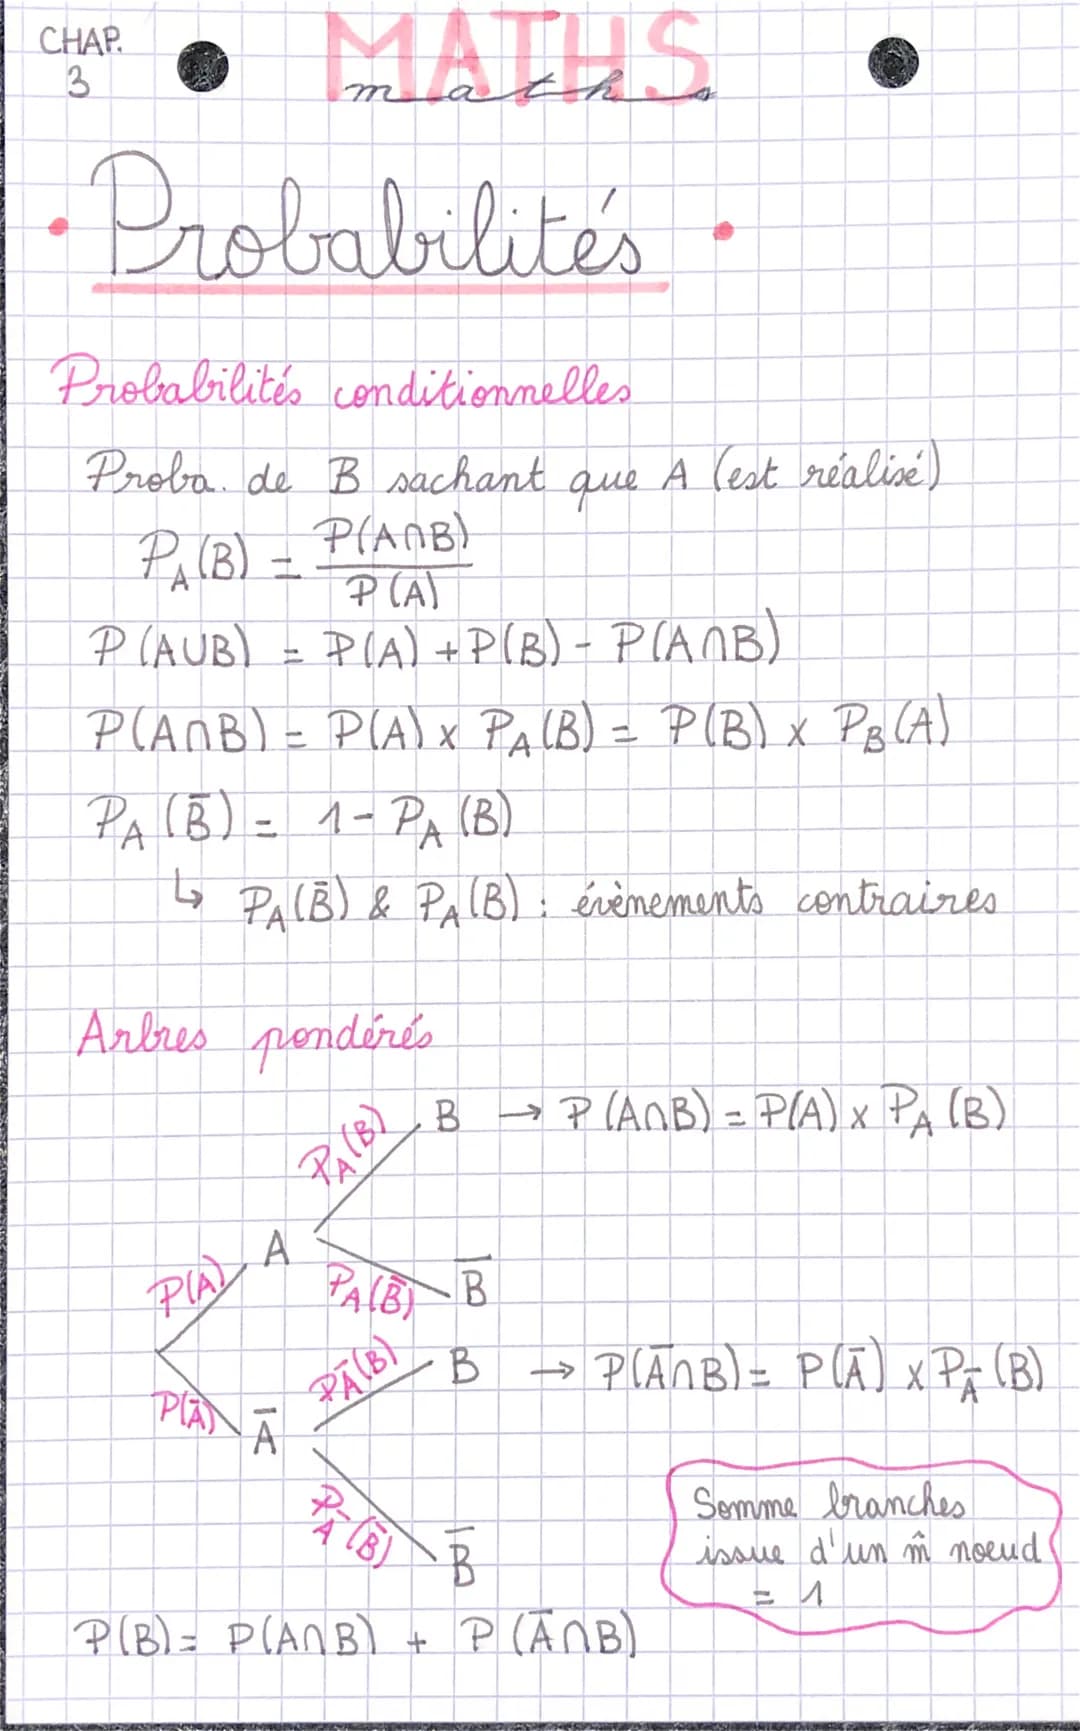 CHAP.
3
MATHS
maths
Probabilités
Probabilités conditionnelles
Proba. de B sachant que A (est réalisé)
P_A(B) = P(A∩B) / P(A)
P(A∪B) = P(A) + P(B) - P(A∩B)
P(A∩B) = P(A) x P_A(B) = P(B) x P_B(A)
P_A(B̄) = 1 - P_A(B)
↳ P_A(B̄) & P_A(B) : évènements contraires
Arbres pondérés
P_A(B) B → P(A∩B) = P(A) x P_A(B)
P(A) A
P_A(B̄) B̄
P_Ā(B) B → P(Ā∩B) = P(Ā) x P_Ā(B)
P(Ā) Ā
P_Ā(B̄) B̄
Somme branches
issue d'un m̂ noeud
= 1
P(B) = P(A∩B) + P(Ā∩B)